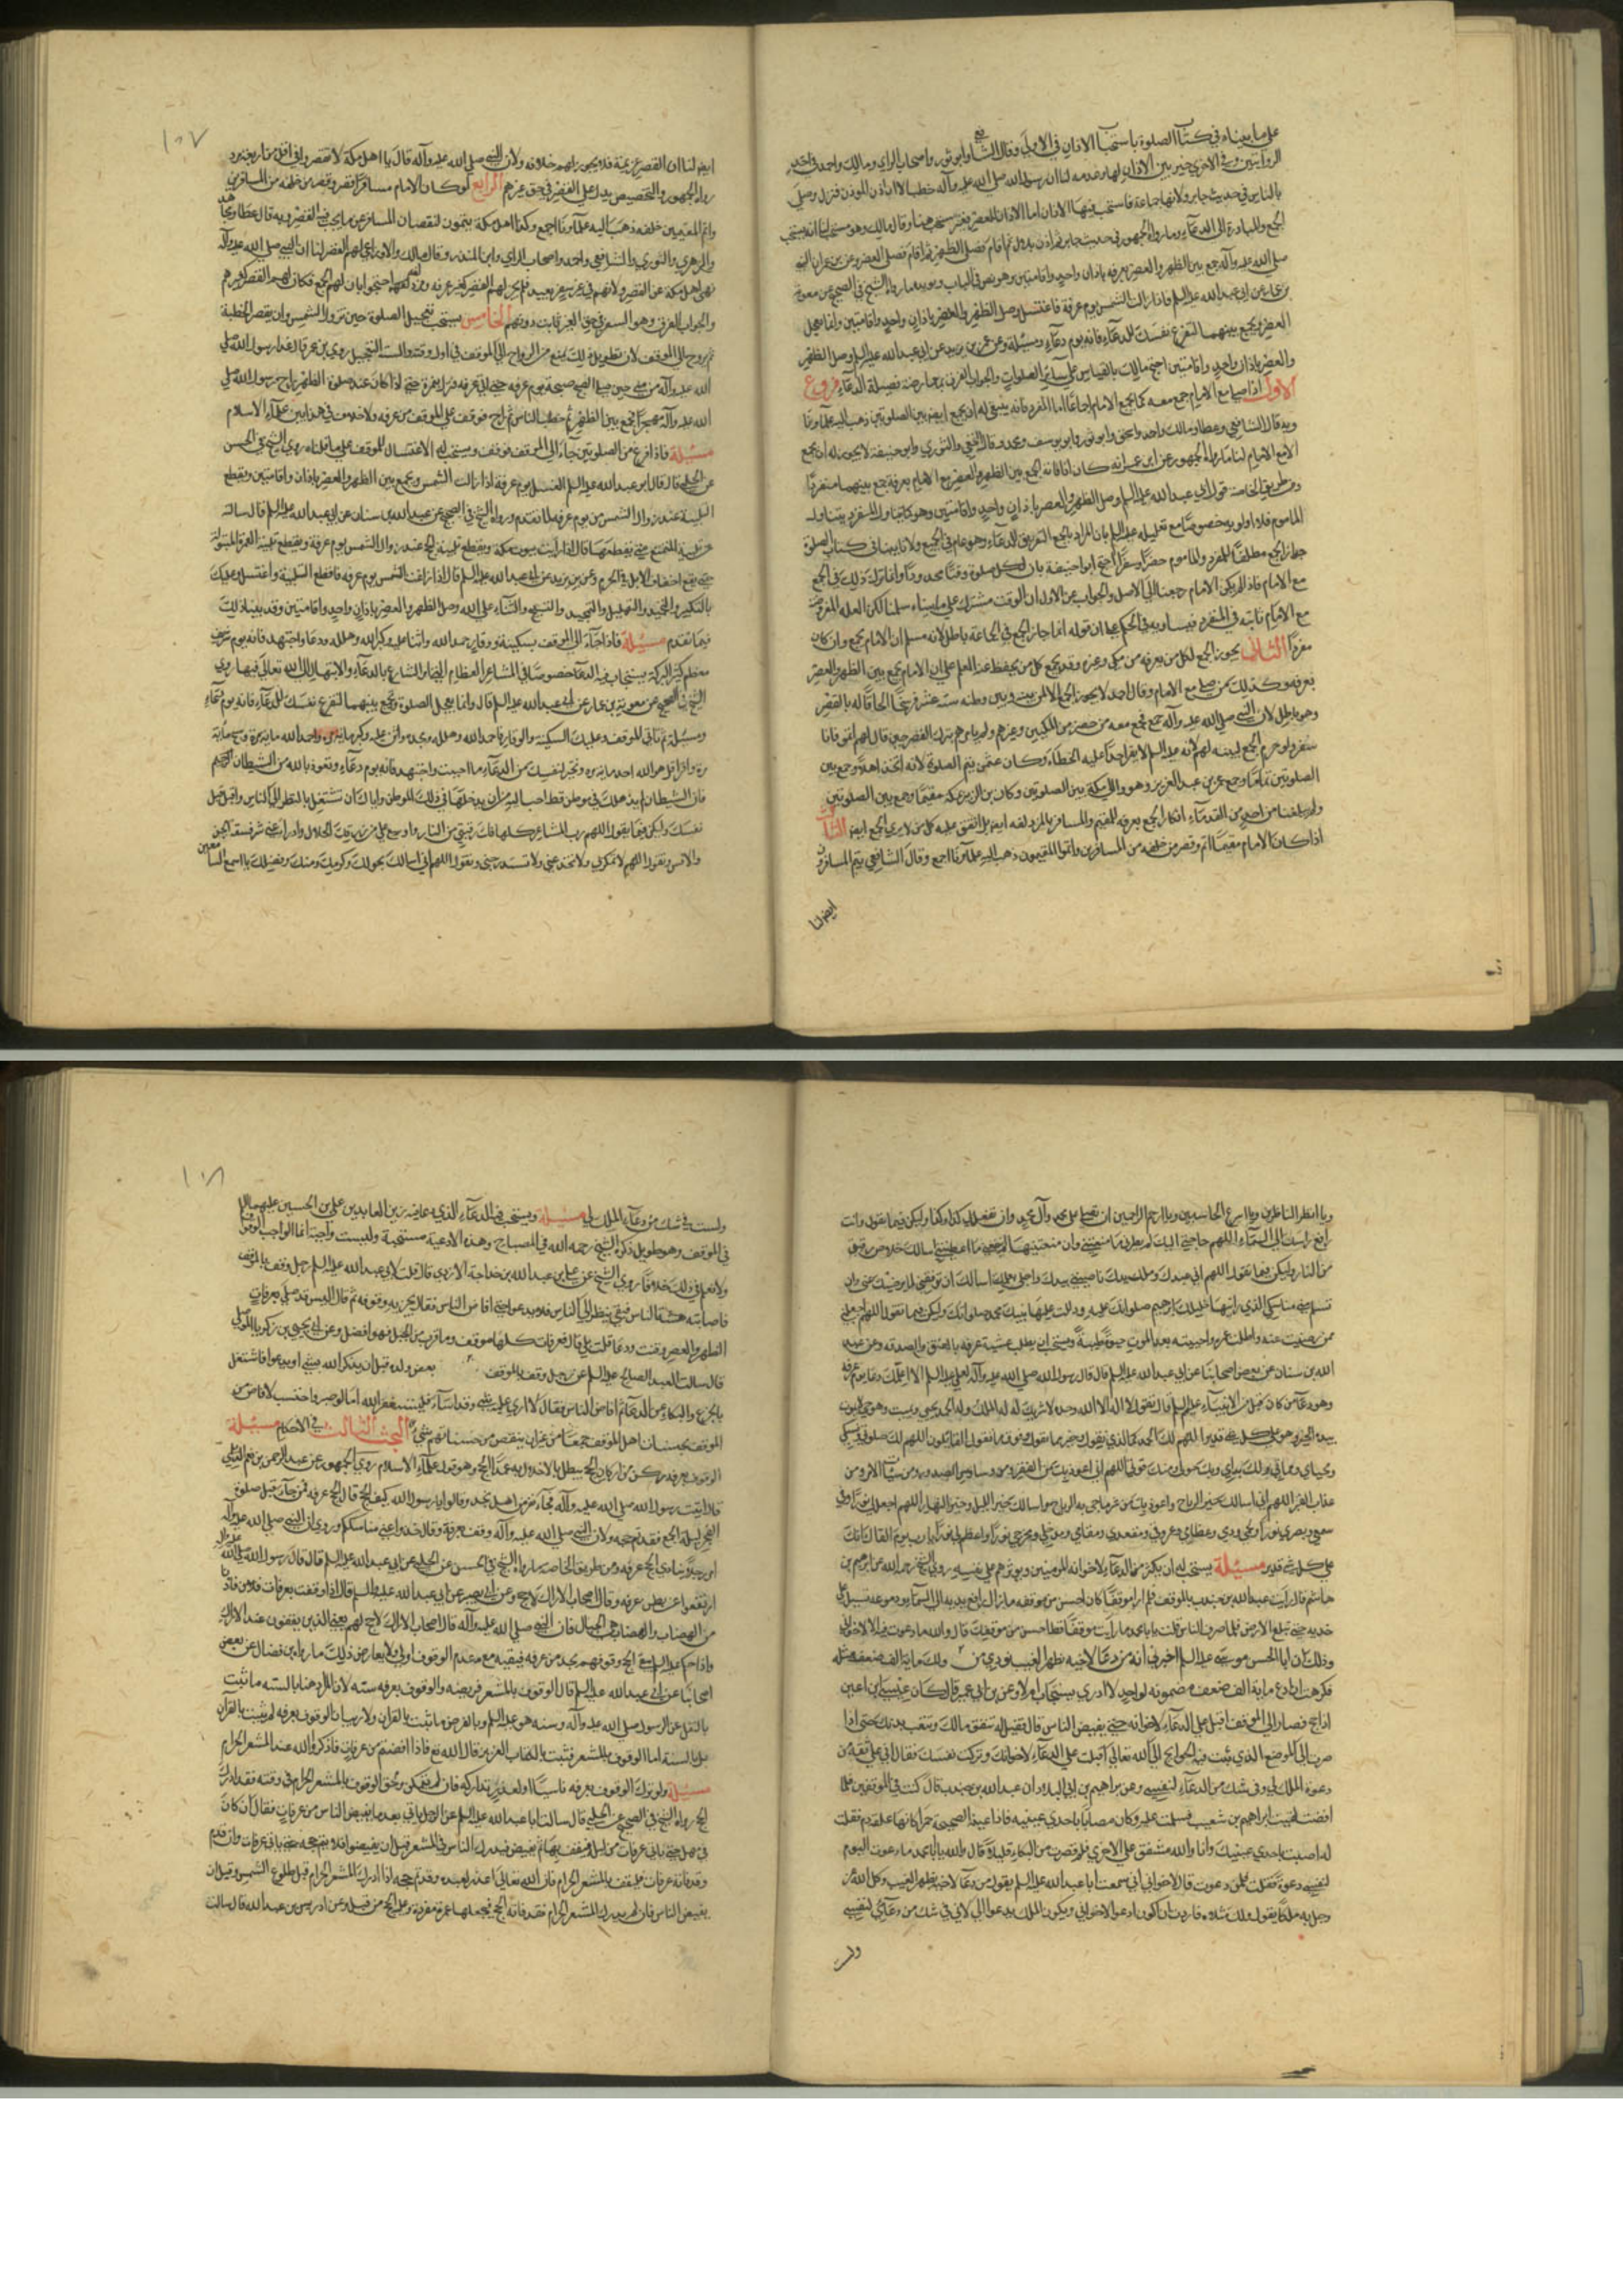 على ما بيناه في كتاب الصلوة باستحباب الاذان في الاولى وقال الشافعي وابو ثور واصحاب الراي ومالك واحمد في احدى
الروايتين وفي الاخرى خير بين الاذان لها وعدمه لنا ان رسول الله صلى الله عليه وآله خطب الا ان اذن الموذن فنزل وصلى
بالناس في حديث جابر ولانها جماعة فاستحب فيها الاذان اما الاذان للعصر فغير مستحب هنا وقال مالك وهو مستحب لنا انه يستحب
الجمع والمبادرة الى الدعاء وما رواه الجمهور في حديث جابر ثم اذن بلال ثم اقام فصلى الظهر ثم اقام فصلى العصر وعن بن عمر ان النبي
صلى الله عليه وآله جمع بين الظهر والعصر بعرفه باذان واحد واقامتين وهو نص في الباب ويويده ما رواه الشيخ في الصحيح عن معوية
بن عمار عن ابي عبد الله عليه السلم فاذا زالت الشمس يوم عرفة فاغتسل وصل الظهر والعصر باذان واحد واقامتين وانما تعجل
العصر وتجمع بينهما لتفرغ نفسك للدعاء فانه يوم دعاء ومسئلة وعن عمر بن يزيد عن ابي عبد الله عليه السلم وصل الظهر
والعصر باذان واحد واقامتين احتج مالك بالقياس على ساير الصلوات والجواب الفرق بمعارضة فضيلة الدعاء فروع
الاول اذا صلى مع الامام جمع معه كما يجمع الامام اجماعا اما المنفرد فانه ينبغي له ان يجمع ايضا بين الصلوتين ذهب اليه علماونا
وبه قال الشافعي وعطا ومالك واحمد واسحق وابو ثور وابو يوسف ومحمد وقال النخعي والثوري وابو حنيفة لا يجوز له ان يجمع
الا مع الامام لنا ما رواه الجمهور عن ابن عمر انه كان اذا فاته الجمع بين الظهر والعصر مع الامام بعرفة جمع بينهما منفردا
ومن طريق الخاصة قول ابي عبد الله عليه السلم وصل الظهر والعصر باذان واحد واقامتين وهو كما يتناول المنفرد يتناول
الماموم فلا اولويه خصوصا مع تعليله عليه السلم بان المراد بالجمع التفرغ للدعاء وهو عام في الجميع ولانا بينا في كتاب الصلوة
جواز الجمع مطلقا للمنفرد والماموم حضرا وسفرا احتج ابو حنيفة بان لكل صلوة وقتا محدودا وانما ترك ذلك في الجمع
مع الامام فاذا لم يكن الامام رجعنا الى الاصل والجواب عن الاول ان الوقت مشترك على ما بيناه سلمنا لكن العله
مع الامام ثابتة في المنفرد فيساويه في الحكم على ان قوله انما جاز الجمع في الجماعة باطل لانه مسلم ان الامام يجمع وان كان
منفردا الثاني يجوز الجمع لكل من بعرفه من مكي وغيره وقد جمع كل من يحفظ عنه العلم على ان الامام يجمع بين الظهر والعصر
بعرفه وكذلك من صلى مع الامام وقال احمد لا يجوز الجمع الا لمن بينه وبين وطنه ستة عشر فرسخا الحاقا له بالقصر
وهو باطل لان النبي صلى الله عليه وآله جمع فجمع معه من حضره من المكيين وغيرهم ولم يامرهم بترك القصر حين قال لهم اتموا فانا
سفر ولو حرم الجمع لبينه لهم لانه عليه السلم لا يقر احدا على الخطاء وكان عثمان يتم الصلوة لانه اتخذ اهلا وجمع بين
الصلوتين وجمع عمر بن عبد العزيز وهو والي مكة بين الصلوتين وكان بن الزبير بمكة مقيما وجمع بين الصلوتين
ولم يبلغنا من احد من القدماء انكار الجمع بعرفه للمقيم والمسافر بل ايضا بل اتفق عليه كل من لا يرى الجمع ايضا الثالث
اذا كان الامام مقيما اتم وقصر من خلفه من المسافرين واتموا المقيمون ذهب اليه علماونا اجمع وقال الشافعي يتم المسافرون
ايضا لنا
١٠٧
ايضا لنا ان القصر عزيمة فلا يجوز لهم خلافه ولان النبي صلى الله عليه وآله قال يا اهل مكة لا تقصروا في اقل من اربعة برد
رواه الجمهور والتخصيص يدل على القصر في حق غيرهم الرابع لو كان الامام مسافرا قصر وقصر من خلفه من المسافرين
واتم المقيمين خلفه ذهب اليه علماونا اجمع وكذا اهل مكة يتمون لنقصان المسافة عن ما يجب فيه القصر وبه قال عطا ومجاهد
والزهري والثوري والشافعي واحمد واصحاب الراي وابن المنذر وقال مالك والاوزاعي لهم القصر لنا ان النبي صلى الله عليه وآله
نهى اهل مكة عن القصر ولانهم في غير سفر بعيد فلم يجز لهم القصر كغير عرفه احتجوا بان لهم الجمع فكان لهم القصر كغيرهم
والجواب الفرق وهو السفر في حق الغير ثابت دونهم الخامس يستحب تعجيل الصلوة حين تزول الشمس وان يقصر الخطبة
ثم يروح الى الموقف لان تطويل ذلك يمنع من الرواح الى الموقف في اول وقته والسنة التعجيل روى بن عمر قال غدا رسول الله صلى
الله عليه وآله من منى حين صلى الصبح صبيحة يوم عرفه حتى اتى عرفه فنزل بنمرة حتى اذا كان عند صلوة الظهر راح رسول الله صلى
الله عليه وآله مهجرا فجمع بين الظهر والعصر ثم خطب الناس ثم راح فوقف على الموقف من عرفه ولا خلاف في هذا بين علماء الاسلام
مسئلة فاذا فرغ من الصلوتين جاء الى الموقف فوقف ويستحب له الاغتسال للموقف على ما قلناه روى الشيخ في الحسن
عن الحلبي قال قال ابو عبد الله عليه السلم الغسل يوم عرفة اذا زالت الشمس وتجمع بين الظهر والعصر باذان واقامتين ويقطع
التلبية عند زوال الشمس من يوم عرفه لما تقدم ورواه الشيخ في الصحيح عن عبد الله بن سنان عن ابي عبد الله عليه السلم قال سالته
عن تلبية المتمتع متى يقطعها قال اذا رايت بيوت مكة ويقطع تلبية الحج عند زوال الشمس يوم عرفة ويقطع تلبية العمرة المبتولة
حتى تقع اخفاف الابل في الحرم وعن عمر بن يزيد عن ابي عبد الله عليه السلم قال اذا زاغت الشمس يوم عرفه فاقطع التلبية واغتسل وعليك
بالتكبير والتحميد والتهليل والتمجيد والتسبيح والثناء على الله وصل الظهر والعصر باذان واحد واقامتين وقد بينا ذلك
فيما تقدم مسئلة فاذا جاء الى الموقف بسكينة ووقار حمد الله واثنا عليه وكبر الله وهلله ودعا واجتهد فانه يوم شريف
معظم كثير البركة يستجاب فيه الدعا خصوصا في المشاعر العظام امر الشارع بالدعاء والابتهال الى الله تعالى فيها روى
الشيخ في الصحيح عن معوية بن عمار عن ابي عبد الله عليه السلم قال وانما تعجل الصلوة وتجمع بينهما لتفرغ نفسك للدعاء فانه يوم دعاء
ومسئلة ثم تاتي الموقف وعليك السكينة والوقار فاحمد الله وهلله ومجده واثن عليه وكبره ماية مرة واحمد الله ماية مرة وسبحه ماية
مرة واقرا قل هو الله احد ماية مره وتخير لنفسك من الدعاء ما احببت واجتهد فانه يوم دعاء وتعوذ بالله من الشيطان الرجيم
فان الشيطان لن يذهلك في موطن قط احب اليه من ان يذهلك في ذلك الموطن واياك ان تشتغل بالنظر الى الناس واقبل قبل
نفسك وليكن فيما تقول اللهم رب المشاعر كلها فك رقبتي من النار واوسع علي من رزقك الحلال وادرا عني شر فسقة الجن
والانس وتقول اللهم لا تمكر بي ولا تخدعني ولا تستدرجني وتقول اللهم اني اسالك بحولك وجودك وكرمك ومنك وفضلك يا اسمع السامعين
ويا ابصر الناظرين ويا اسرع الحاسبين ويا ارحم الراحمين ان تصلي على محمد وآل محمد وان تفعل بي كذا وكذا وليكن فيما تقول وانت
رافع راسك الى السماء اللهم حاجتي اليك التي ان اعطيتنيها لم يضرني ما منعتني وان منعتنيها لم ينفعني ما اعطيتني اسالك خلاص رقبتي
من النار وليكن فيما تقول اللهم اني عبدك وملك يدك ناصيتي بيدك واجلي بعلمك اسالك ان توفقني لما يرضيك عني وان
تسلم مني مناسكي الذي اريتها خليلك ابراهيم صلواتك عليه ودللت عليها نبيك محمد صلواتك وليكن فيما تقول اللهم اجعلني
ممن رضيت عنه واطلت عمره واحييته بعد الموت حيوة طيبة ويستحب ان يطلب عشية عرفه بالعتق والصدقه وعن عبد
الله بن سنان عن بعض اصحابنا عن ابي عبد الله عليه السلم قال قال رسول الله صلى الله عليه وآله لعلي عليه السلم الا اعلمك دعاء يوم عرفة
وهو دعاء من كان قبلي من الانبياء عليهم السلم قال تقول لا اله الا الله وحده لا شريك له له الملك وله الحمد يحيي ويميت وهو حي لا يموت
بيده الخير وهو على كل شئ قدير اللهم لك الحمد كالذي نقول وخير مما نقول وفوق ما يقول القائلون اللهم لك صلوتي ونسكي
ومحياي ومماتي ولك براءتي وبك حولي ومنك قوتي اللهم اني اعوذ بك من الفقر ومن وساوس الصدور ومن شتات الامر ومن
عذاب القبر اللهم اني اسالك خير الرياح واعوذ بك من شر ما تجئ به الرياح واسالك خير الليل وخير النهار اللهم اجعل لي في قلبي نورا وفي
سمعي وبصري نورا ولحمي ودمي وعظامي وعروقي ومقعدي ومقامي ومدخلي ومخرجي نورا واعظم لي نورا يا رب يوم القاك انك
على كل شئ قدير مسئلة يستحب له ان يكثر من الدعاء لاخوانه المومنين ويوثرهم على نفسه روى الشيخ رحمه الله عن ابراهيم بن
هاشم قال رايت عبد الله بن جندب بالموقف فلم ار موقفا كان احسن من موقفه ما زال رافع يديه الى السماء ودموعه تسيل على
خديه حتى تبلغ الارض فلما صرف الناس قلت يا با محمد ما رايت موقفا قط احسن من موقفك قال والله ما دعوت فيه الا لاخواني
وذلك ان ابا الحسن موسى عليه السلم اخبرني انه من دعا لاخيه بظهر الغيب نودي من ولك ماية الف ضعف مثله
فكرهت ان ادع ماية الف ضعف مضمونه لواحد لا ادري يستجاب ام لا وعن بن ابي عمير قال كان عيسى بن اعين
اذا حج فصار الى الموقف اقبل على الدعاء لاخوانه حتى يفيض الناس قال فقيل له تنفق مالك وتتعب بدنك حتى اذا
صرت الى الموضع الذي تبث فيه الحوائج الى الله تعالى اقبلت على الدعاء لاخوانك وتركت نفسك فقال اني على ثقة من
دعوة الملك لي وفي شك من الدعاء لنفسي وعن ابراهيم بن ابي البلاد وان عبد الله بن جندب قال كنت في الموقف فلما
افضت لقيت ابراهيم بن شعيب فسلمت عليه وكان مصابا باحدى عينيه فاذا عينه الصحيحة حمراء كانها علقة دم فقلت
له اصبت باحدى عينيك وانا والله مشفق على الاخرى فلو قصرت من البكاء قليلا قال والله يا با محمد ما دعوت اليوم
لنفسي دعوة فقلت فلمن دعوت قال لاخواني اني سمعت ابا عبد الله عليه السلم يقول من دعا لاخيه بظهر الغيب وكل الله عز
وجل به ملكا يقول ولك مثلاه فاردت ان اكون ادعو لاخواني ويكون الملك يدعو لي لاني في شك من دعائي لنفسي
ولست
١٠٨
ولست في شك من دعاء الملك لي مسئلة ويستحب فيه الدعاء الذي دعا به زين العابدين علي بن الحسين عليهما السلم
في الموقف وهو طويل ذكره الشيخ رحمه الله في المصباح وهذه الادعية مستحبة وليست واجبة انما الواجب الوقوف
ولا نعلم في ذلك خلافا روى الشيخ عن علي بن عبد الله بن جذاعة الازدي قال قلت لابي عبد الله عليه السلم رجل وقف بالموقف
فاصابته دهشة الناس فبقي ينظر الى الناس فلا يدعو حتى افاض الناس فقال يجزيه وقوفه ثم قال اليس قد صلى بعرفات
الظهر والعصر وقنت ودعا قلت بلى قال فعرفات كلها موقف وما قرب من الجبل فهو افضل وعن ابي يحيى بن زكريا الموصلي
قال سالت العبد الصالح عليه السلم عن رجل وقف بالموقف بعض ولده قبل ان يذكر الله بشئ او يدعوا فاشتغل
بالجزع والبكاء عن الدعاء ثم افاض الناس فقال لا ارى عليه شئ وقد اساء فليستغفر الله اما لو صبر واحتسب لافاض من
الموقف بحسنات اهل الموقف جميعا من غير ان ينقص من حسناتهم شئ البحث الثالث في الاحكام مسئلة
الوقوف بعرفه ركن من اركان الحج يبطل بالاخلال به عمدا الحج وهو قول علماء الاسلام روى الجمهور عن عبد الرحمن بن نعم الديلي
قال اتيت رسول الله صلى الله عليه وآله فجاءه نفر من اهل نجد وقالوا يا رسول الله كيف الحج قال الحج عرفه فمن جاء قبل صلوة
الفجر ليلة الجمع فقد تم حجه ولان النبي صلى الله عليه وآله وقف بعرفة وقال خذوا عني مناسككم وروي ان النبي صلى الله عليه وآله
امر رجلا ينادي الحج عرفه ومن طريق الخاصة ما رواه الشيخ في الحسن عن الحلبي عن ابي عبد الله عليه السلم قال قال رسول الله صلى الله عليه وآله
ارتفعوا عن بطن عرفه وقال اصحاب الاراك لا حج وعن ابي بصير عن ابي عبد الله عليه السلم قال اذا وقفت بعرفات فادن
من الهضاب والهضاب هي الجبال فان النبي صلى الله عليه وآله قال اصحاب الاراك لا حج لهم يعني الذين يقفون عند الاراك
واذا حكم عليه السلم بنفي الحج وقوفهم بحد من عرفه فبنفيه مع عدم الوقوف اولى ولا يعارض ذلك ما رواه بن فضال عن بعض
اصحابنا عن ابي عبد الله عليه السلم قال الوقوف بالمشعر فريضه والوقوف بعرفه سنه لان المراد هنا بالسنه ما ثبت
بالنقل عن الرسول صلى الله عليه وآله وسنه هو عليه السلم وبالفرض ما ثبت بالقران ولا ريب ان الوقوف بعرفه لم يثبت بالقران
بل بالسنة اما الوقوف بالمشعر فثبت بالكتاب العزيز قال الله تع فاذا افضتم من عرفات فاذكروا الله عند المشعر الحرام
مسئلة ولو ترك الوقوف بعرفه ناسيا او لعذر تداركه فان لم يتمكن ولحق الوقوف بالمشعر الحرام في وقته فقد ادرك
الحج رواه الشيخ في الصحيح عن الحلبي قال سالت ابا عبد الله عليه السلم عن الرجل ياتي بعد ما يفيض الناس من عرفات فقال ان كان
في مهل حتى ياتي عرفات من ليلته فيقف بها ثم يفيض فيدرك الناس في المشعر قبل ان يفيضوا فلا يتم حجه حتى ياتي عرفات وان قدم
وقد فاتته عرفات فليقف بالمشعر الحرام فان الله تعالى اعذر لعبده وقد تم حجه اذا ادرك المشعر الحرام قبل طلوع الشمس وقبل ان
يفيض الناس فان لم يدرك المشعر الحرام فقد فاته الحج فيجعلها عمرة مفردة وعليه الحج من قابل وعن ادريس بن عبد الله قال سالت